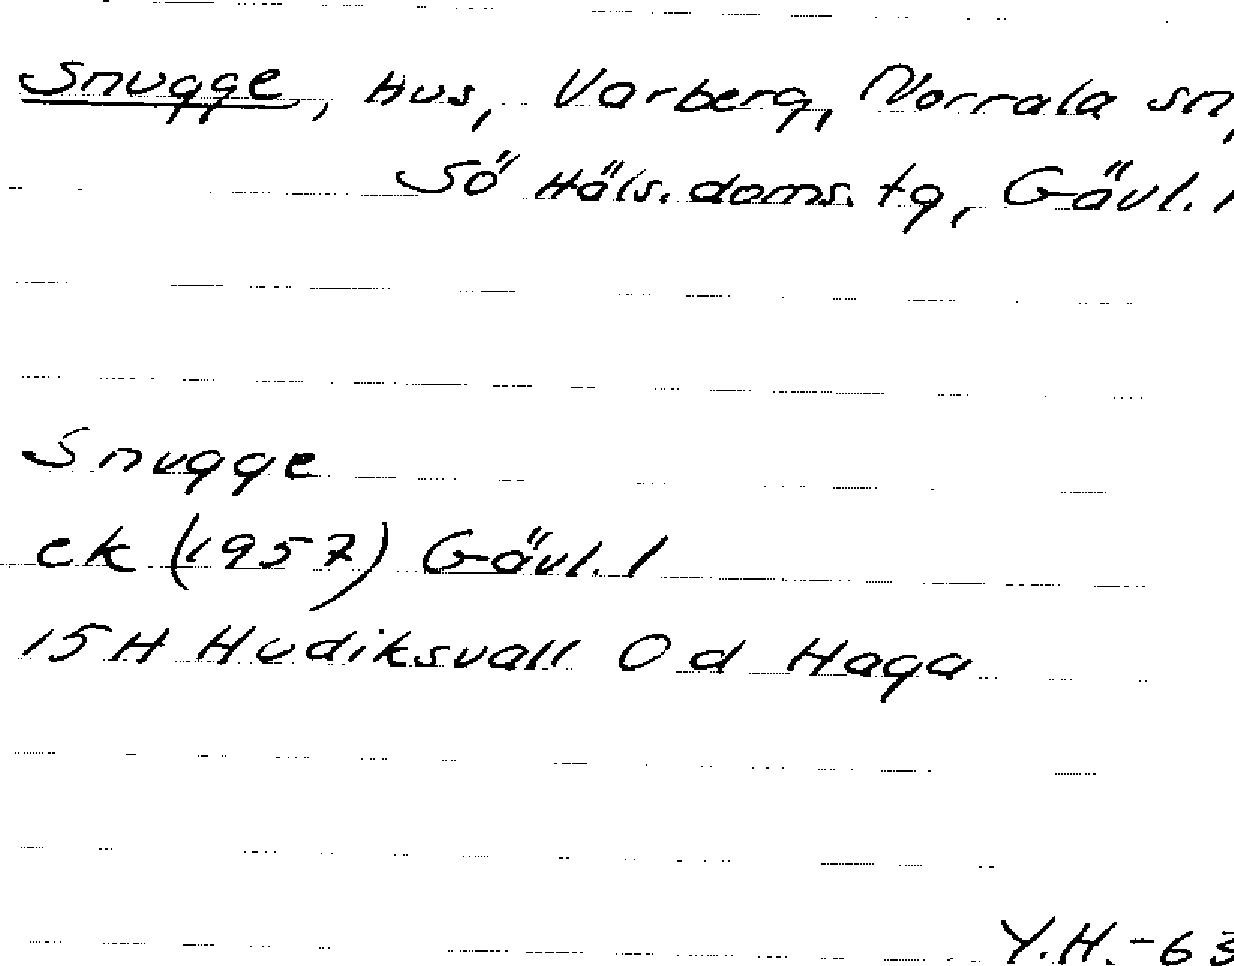 Snugge, Hus, Varberg, Norrala sn,
Sö Häls. doms. tg, Gävl. l
Snugge
ek (1957) Gävl. l
15H Hudiksvall 0 d Haga
Y.H.-63